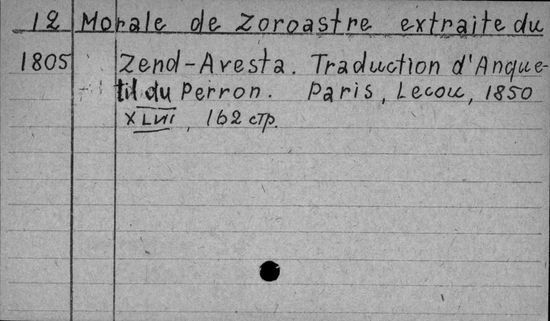 12 Morale de Zoroastre extraite du
1805 Zend-Avesta. Traduction d'Anque-
til du Perron. Paris, Lecou, 1850
XLVII, 162 стр.